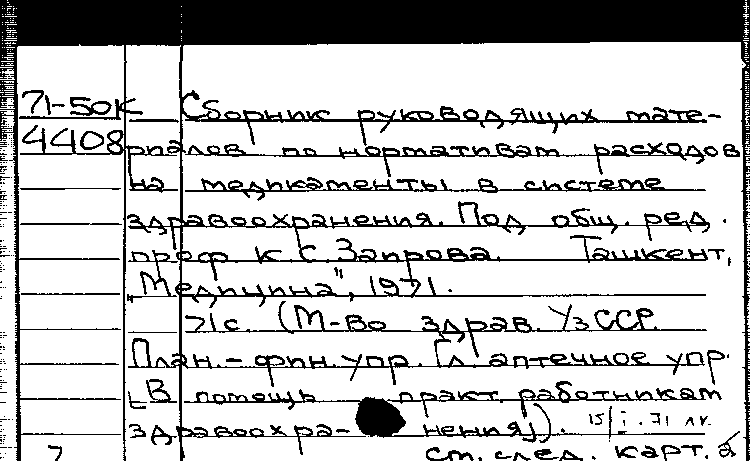 71-50к Сборник руководящих мате-
4408 риалов по нормативам расходов
на медикаменты в системе
здравоохранения. Под общ. ред.
проф. К.С. Заирова. Ташкент,
"Медицина", 1971.
71с. (М-во здрав. УзССР.
План.-фин. упр. Гл. аптечное упр.
[В помощь практ. работникам
здравоохра-нения]).
см. след. карт.